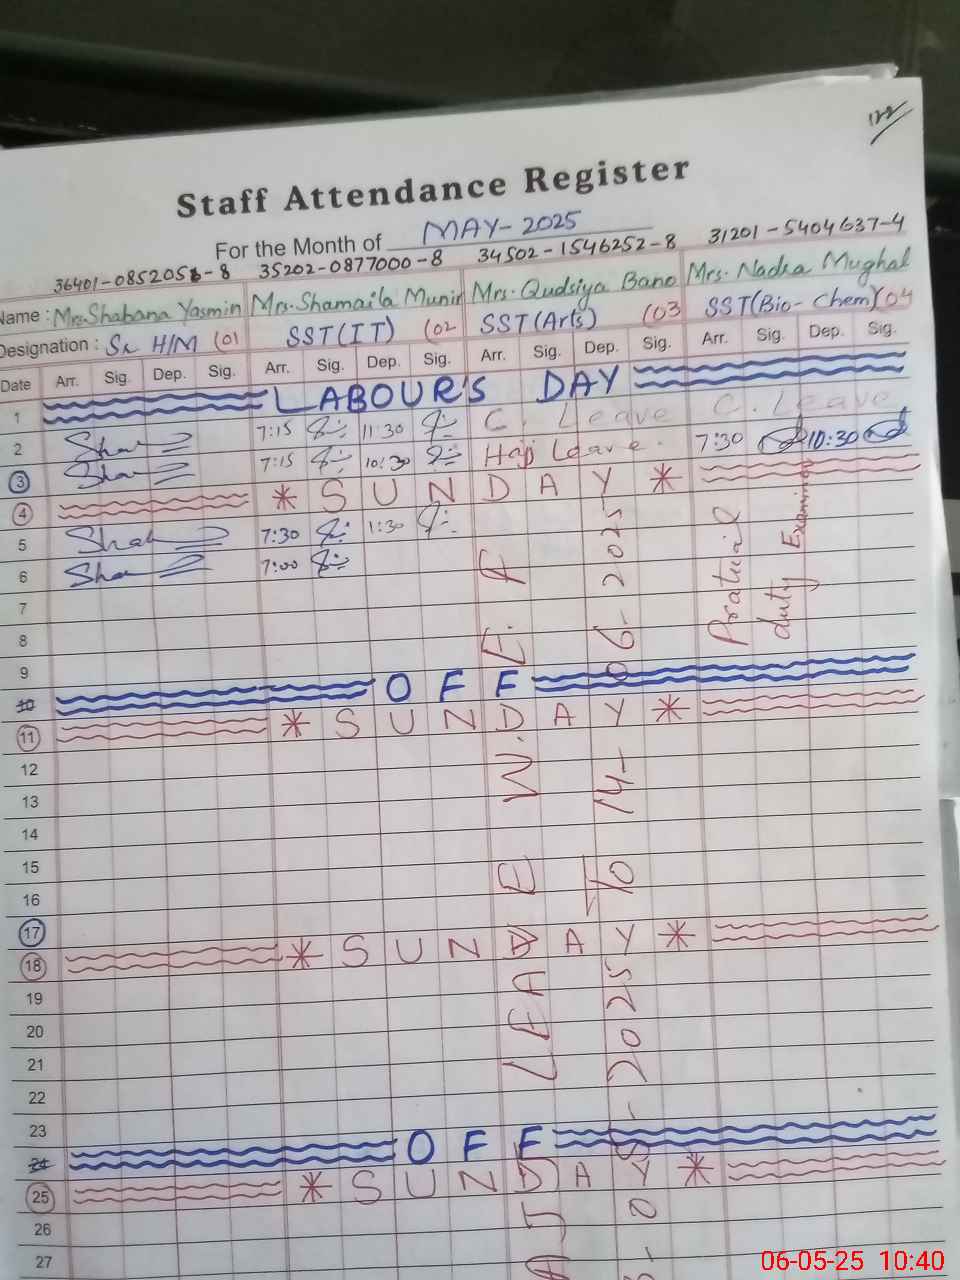 122
Staff Attendance Register
For the Month of MAY-2025
36401-0852056-8 35202-0877000-8 34502-1546252-8 31201-5404637-4
Name: Mrs. Shabana Yasmin Mrs. Shamaila Munir Mrs. Qudsiya Bano Mrs. Nadra Mughal
Designation: Sr H/M (01 SST(IT) (02 SST(Arts) (03 SST(Bio-Chem)(04
Date Arr. Sig. Dep. Sig. Arr. Sig. Dep. Sig. Arr. Sig. Dep. Sig. Arr. Sig. Dep. Sig.
1 LABOUR'S DAY
2 7:15 11:30 C. Leave C. Leave
3 7:15 10:30 Hajj Leave. 7:30 10:30
4 * SUNDAY *
5 7:30 1:30
6 7:00
7
8
9
10 OFF
11 * SUNDAY *
12
13
14
15
16
17
18 * SUNDAY *
19
20
21
22
23
24 OFF
25 * SUNDAY *
26
27
LEAVE W.E.F
-2025 to 14-06-2025
duty Examiner
06-05-25 10:40